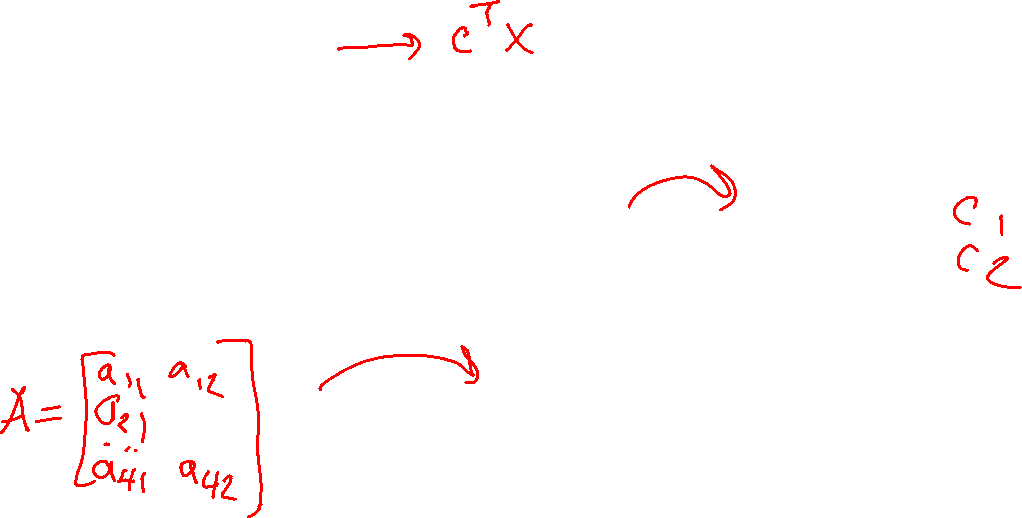 → c^T x
c_1
c_2
A = [ a_11 a_12
a_21
. . .
a_41 a_42 ]